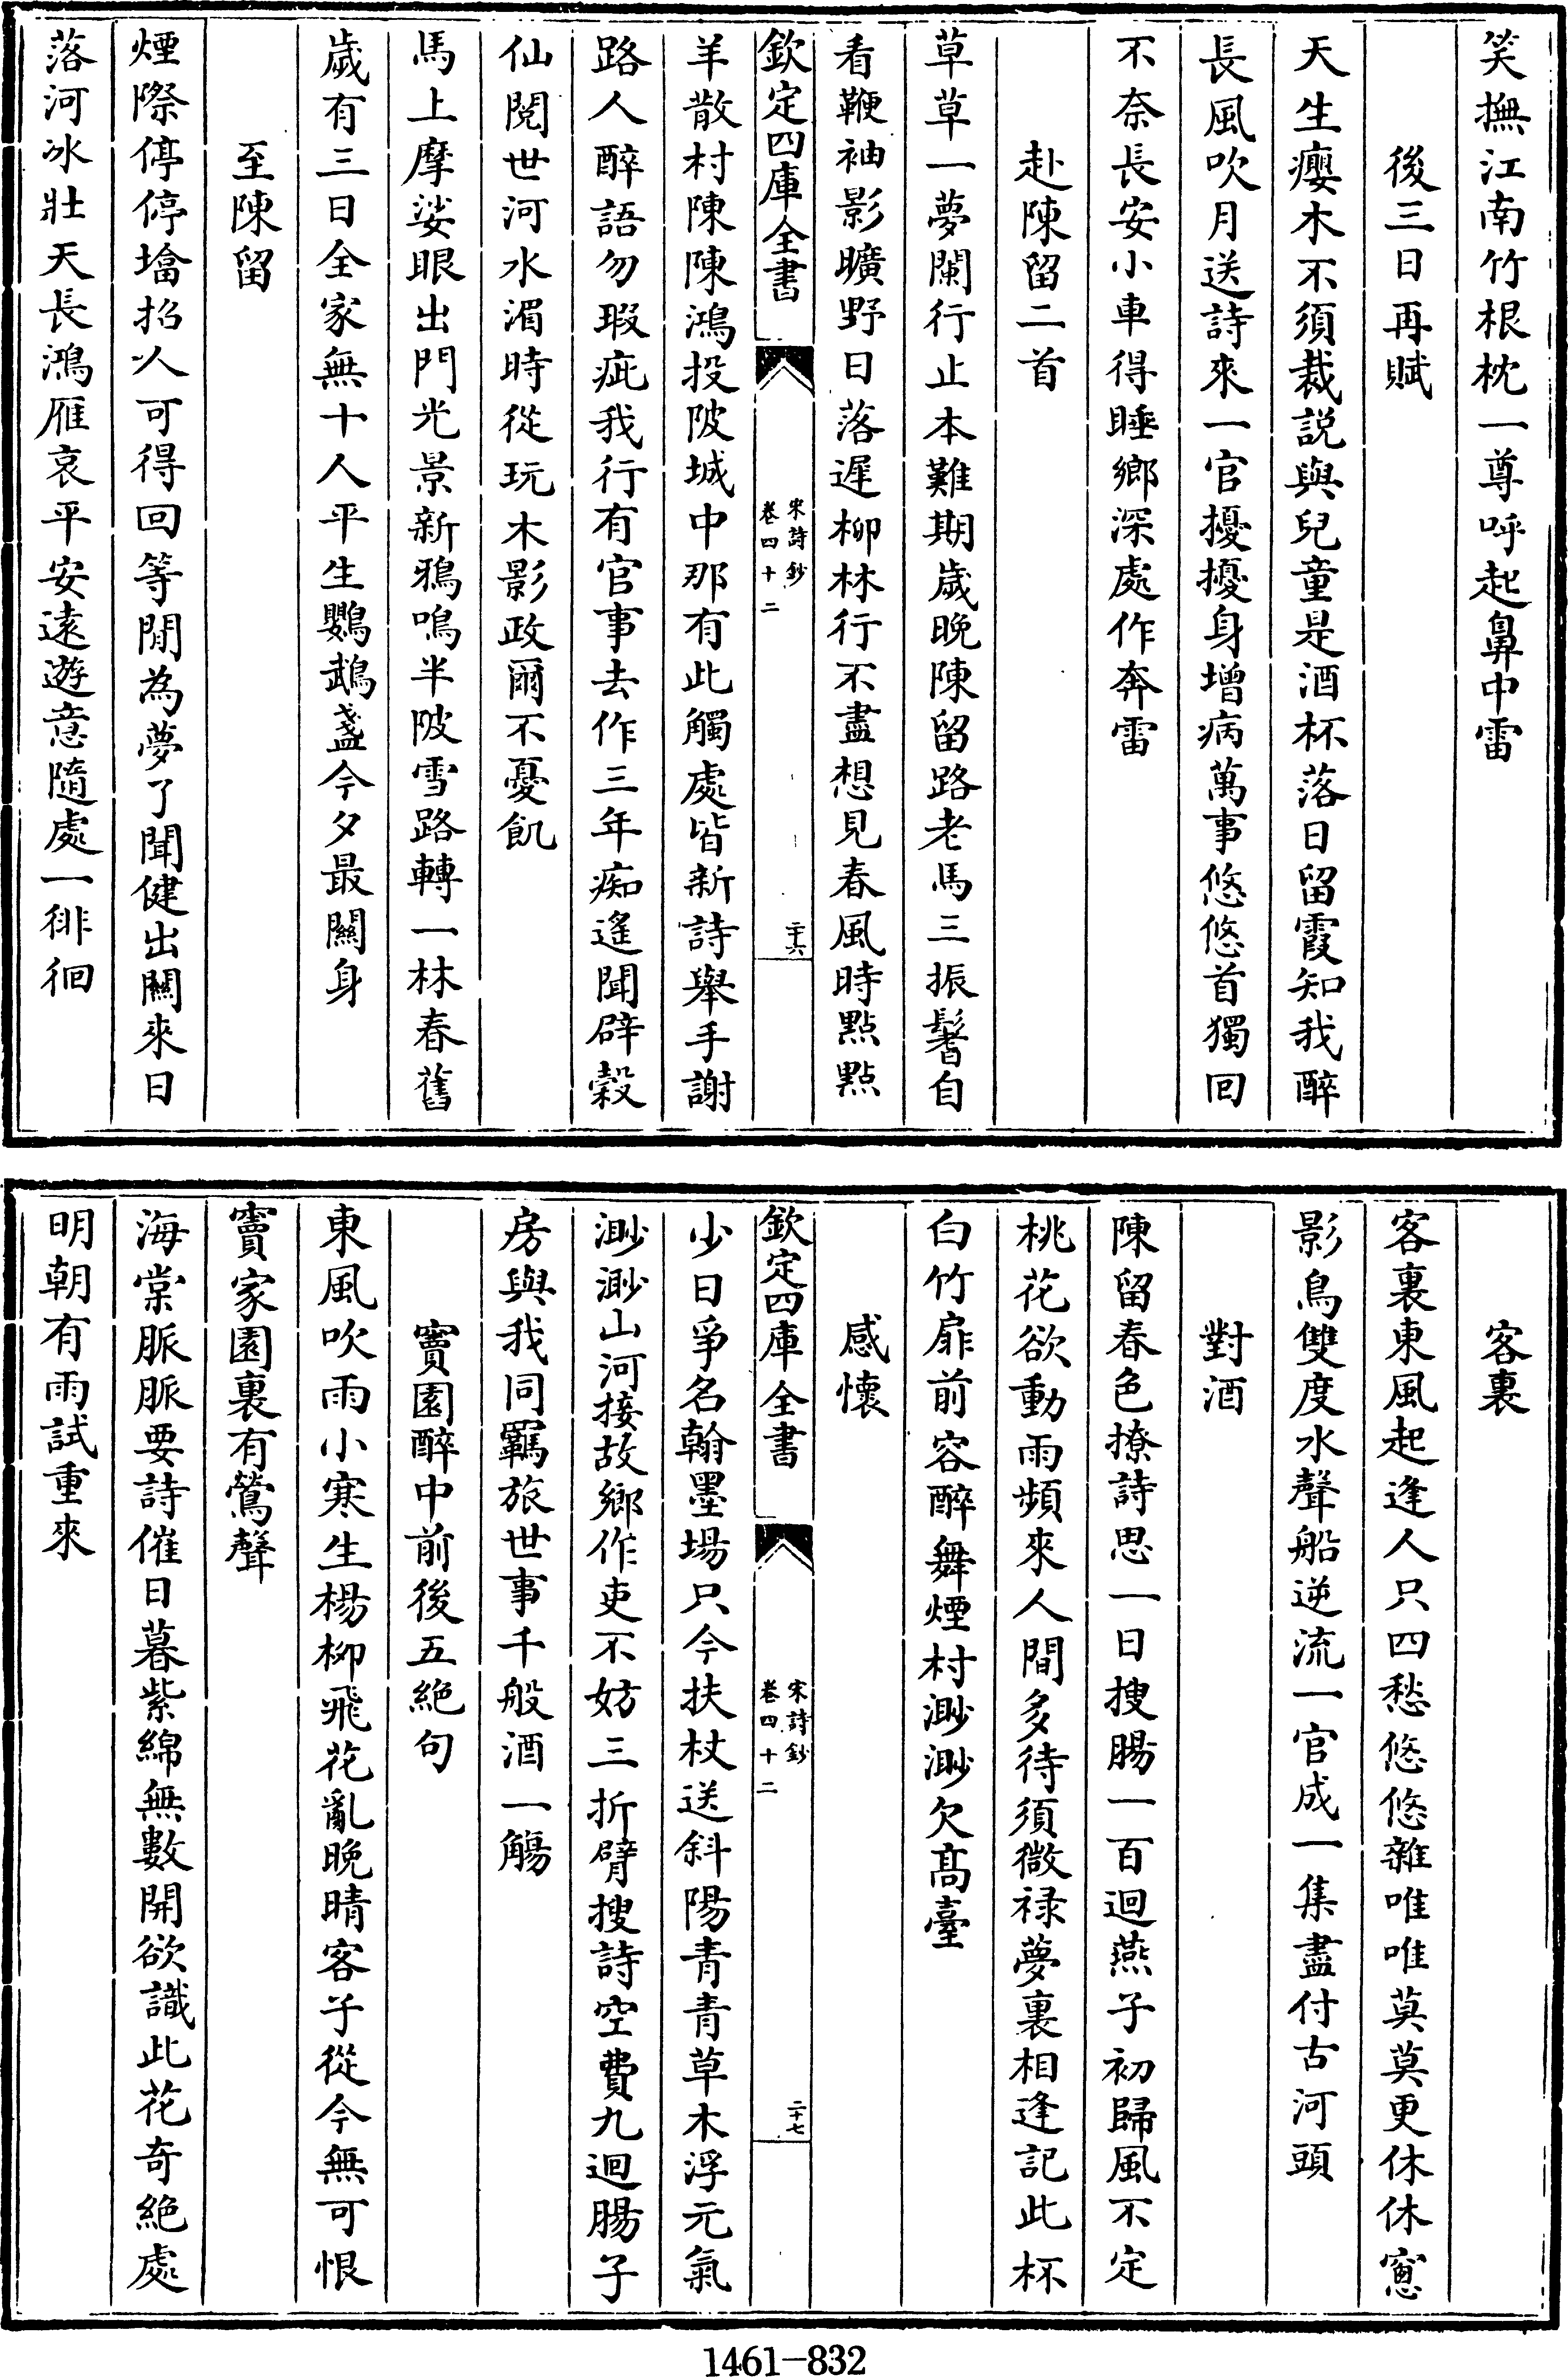 笑撫江南竹根枕一尊呼起鼻中雷
後三日再賦
天生癭木不須裁説與兒童是酒杯落日留霞知我醉
長風吹月送詩來一官擾擾身增病萬事悠悠首獨回
不奈長安小車得睡鄉深處作奔雷
赴陳留二首
草草一夢闌行止本難期歲晚陳留路老馬三振鬐自
看鞭袖影曠野日落遲柳林行不盡想見春風時點點
欽定四庫全書
宋詩鈔
卷四十二
二十六
羊散村陳陳鴻投陂城中那有此觸處皆新詩舉手謝
路人醉語勿瑕疵我行有官事去作三年痴遙聞辟穀
仙閱世河水湄時從玩木影政爾不憂飢
馬上摩娑眼出門光景新鴉鳴半陂雪路轉一林春舊
歲有三日全家無十人平生鸚鵡盞今夕最關身
至陳留
煙際停停墖招人可得回等閒為夢了聞健出關來日
落河冰壯天長鴻雁哀平安逺遊意隨處一徘徊
客裏
客裏東風起逢人只四愁悠悠雜唯唯莫莫更休休窻
影鳥雙度水聲船逆流一官成一集盡付古河頭
對酒
陳留春色撩詩思一日搜腸一百迴燕子初歸風不定
桃花欲動雨頻來人間多待須微禄夢裏相逢記此杯
白竹扉前容醉舞煙村渺渺欠髙臺
感懷
欽定四庫全書
宋詩鈔
卷四十二
二十七
少日爭名翰墨場只今扶杖送斜陽青青草木浮元氣
渺渺山河接故鄉作吏不妨三折臂搜詩空費九迴腸子
房與我同羈旅世事千般酒一觴
竇園醉中前後五絶句
東風吹雨小寒生楊柳飛花亂晚晴客子從今無可恨
竇家園裏有鶯聲
海棠脈脈要詩催日暮紫綿無數開欲識此花奇絶處
明朝有雨試重來
1461-832